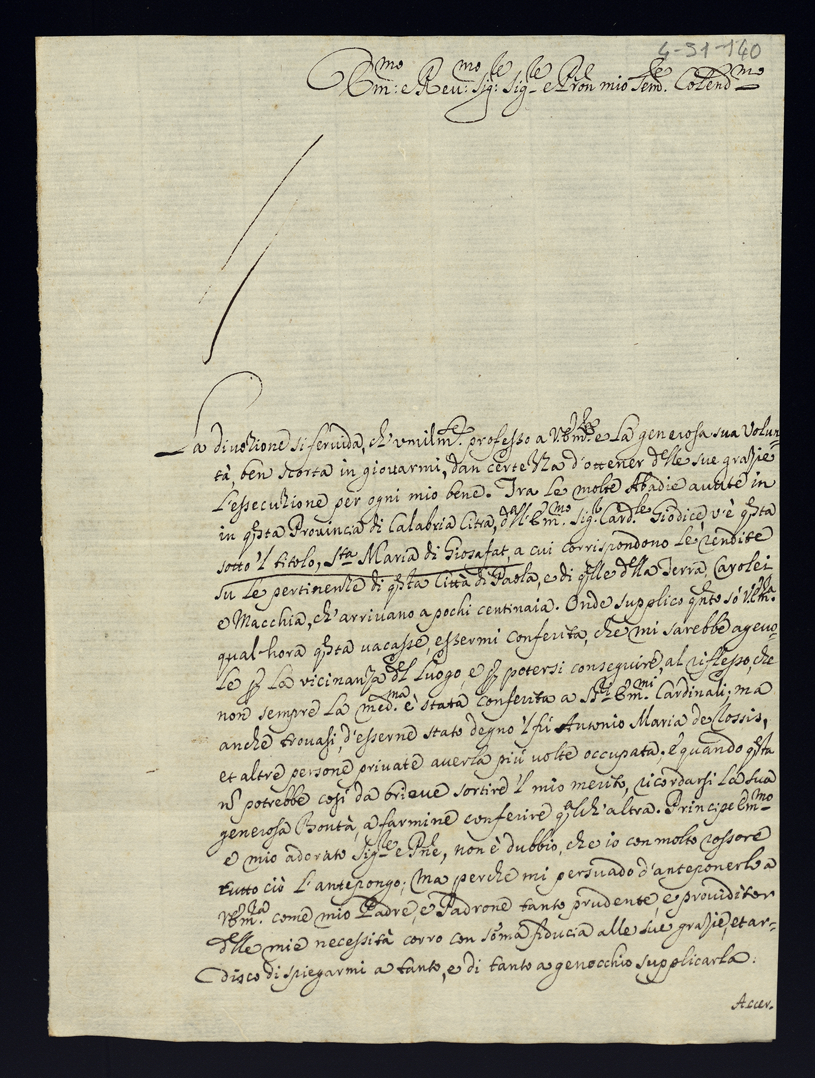 4-31-140
Em:mo e Reu:mo Sig:re Sig.le e Pron mio Sem.le Colend.mo
La diuozione si feruida, ch'vmilm.te professo a V.Em.za e la generosa sua Volun-
tà, ben scorta in giouarmi, dan certezza d'ottener delle sue grazie
l'essecuzione per ogni mio bene. Tra le molte Abadie auute in
in q̃sta Prouincia di Calabria Citra, dall'Em.mo Sig.r Card.le Giodice v'è q̃sta
sotto 'l titolo, S.ta Maria di Giosafat, a cui corrispondono le rendite
su le pertinenze di q̃sta Città di Paola, e di q̃lle della Terra, Carolei
e Macchia, ch'arriuano a pochi centinaia. Onde supplico q̃nto sò V.Em.za
qual-hora q̃sta vacasse, essermi conferita, che mi sarebbe ageuo-
le p la vicinanza del luogo, e p potersi conseguire, al riflesso, che
non sempre la med.ma è stata conferita a S.ri Em.mi Cardinali; ma
anche trouasi, d'esserne stato degno 'l fù Antonio Maria de Rossis,
et altre persone priuate auerla più volte occupata. E quando q̃sta
nõ potrebbe così da brieue sortire 'l mio merito, ricordarsi la sua
generosa Bontà, a farmine conferire qualch'altra. Principe Em.mo
e mio adorato Sig.le e Pñe, non è dubbio, che io con molto rossore
tutto ciò l'antepongo; Ma perche mi persuado d'anteponerlo a
V.Em.za come mio Padre, e Padrone tanto prudente, e prouiditor
delle mie necessità corro con sõma fiducia alle sue grazie, et ar-
disco di spiegarmi a tanto, e di tanto a genocchio supplicarla:
Accer-